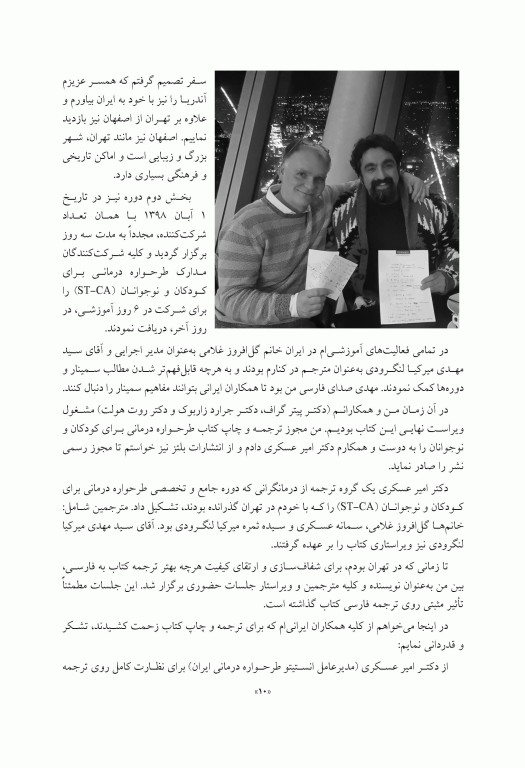 سفر تصمیم گرفتم که همسر عزیزم
آندریا را نیز با خود به ایران بیاورم و
علاوه بر تهران از اصفهان نیز بازدید
نماییم. اصفهان نیز مانند تهران، شهر
بزرگ و زیبایی است و اماکن تاریخی
و فرهنگی بسیاری دارد.
بخش دوم دوره نیز در تاریخ
۱ آبان ۱۳۹۸ با همان تعداد
شرکت‌کننده، مجدداً به مدت سه روز
برگزار گردید و کلیه شرکت‌کنندگان
مدارک طرحواره درمانی برای
کودکان و نوجوانان (ST-CA) را
برای شرکت در ۶ روز آموزشی، در
روز آخر، دریافت نمودند.
در تمامی فعالیت‌های آموزشی‌ام در ایران خانم گل‌افروز غلامی به‌عنوان مدیر اجرایی و آقای سید
مهدی میرکیا لنگرودی به‌عنوان مترجم در کنارم بودند و به هرچه قابل‌فهم‌تر شدن مطالب سمینار و
دوره‌ها کمک نمودند. مهدی صدای فارسی من بود تا همکاران ایرانی بتوانند مفاهیم سمینار را دنبال کنند.
در آن زمان من و همکارانم (دکتر پیتر گراف، دکتر جرارد زاربوک و دکتر روت هولت) مشغول
ویراست نهایی این کتاب بودیم. من مجوز ترجمه و چاپ کتاب طرحواره درمانی برای کودکان و
نوجوانان را به دوست و همکارم دکتر امیر عسکری دادم و از انتشارات بلتز نیز خواستم تا مجوز رسمی
نشر را صادر نماید.
دکتر امیر عسکری یک گروه ترجمه از درمانگرانی که دوره جامع و تخصصی طرحواره درمانی برای
کودکان و نوجوانان (ST-CA) را که با خودم در تهران گذرانده بودند، تشکیل داد. مترجمین شامل:
خانم‌ها گل‌افروز غلامی، سمانه عسکری و سیده ثمره میرکیا لنگرودی بود. آقای سید مهدی میرکیا
لنگرودی نیز ویراستاری کتاب را بر عهده گرفتند.
تا زمانی که در تهران بودم، برای شفاف‌سازی و ارتقای کیفیت هرچه بهتر ترجمه کتاب به فارسی،
بین من به‌عنوان نویسنده و کلیه مترجمین و ویراستار جلسات حضوری برگزار شد. این جلسات مطمئناً
تأثیر مثبتی روی ترجمه فارسی کتاب گذاشته است.
در اینجا می‌خواهم از کلیه همکاران ایرانی‌ام که برای ترجمه و چاپ کتاب زحمت کشیدند، تشکر
و قدردانی نمایم:
از دکتر امیر عسکری (مدیرعامل انستیتو طرحواره درمانی ایران) برای نظارت کامل روی ترجمه
«۱۰»